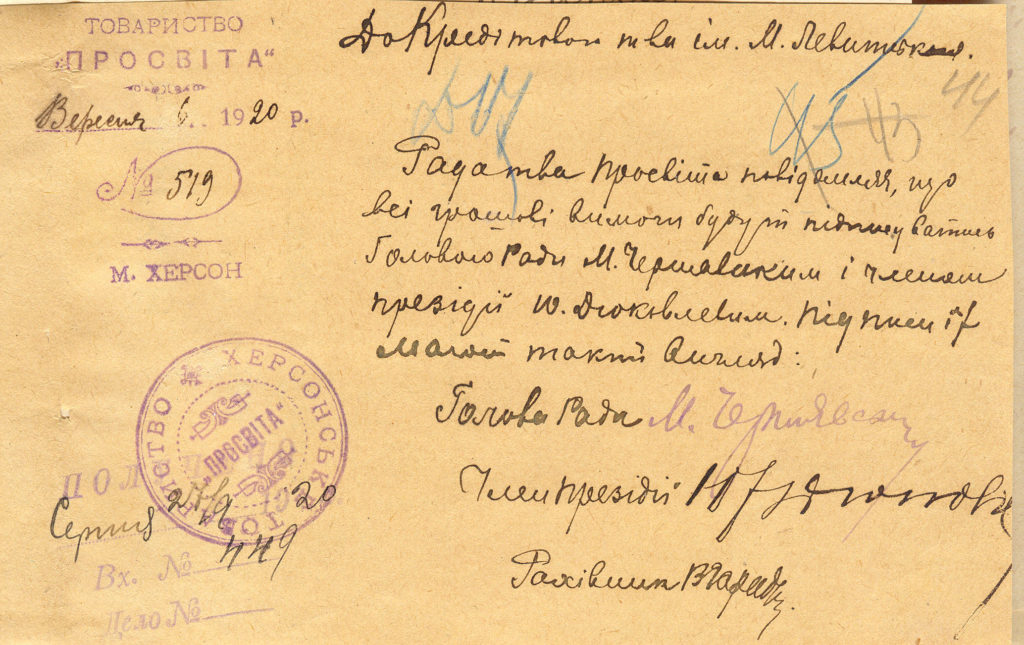 ТОВАРИСТВО
„ПРОСВІТА“
Вересня 6. 1920 р.
№ 519
М. ХЕРСОН
До Кредітового т-ва ім. М. Левитського.
44
43 43
Рада т-ва Просвіта повідомляя, що
всі грошові вимоги будут підписуватись
Головою Ради М. Чернявським і членом
презідії Ю.
Підписи їх
мають такий вигляд:
Голова Ради М. Чернявський
Член презідії
Рахівник
ХЕРСОНСЬКЕ ТОВАРИСТВО
„ПРОСВІТА“
Серпня 20
449
Вх. №
Дело №